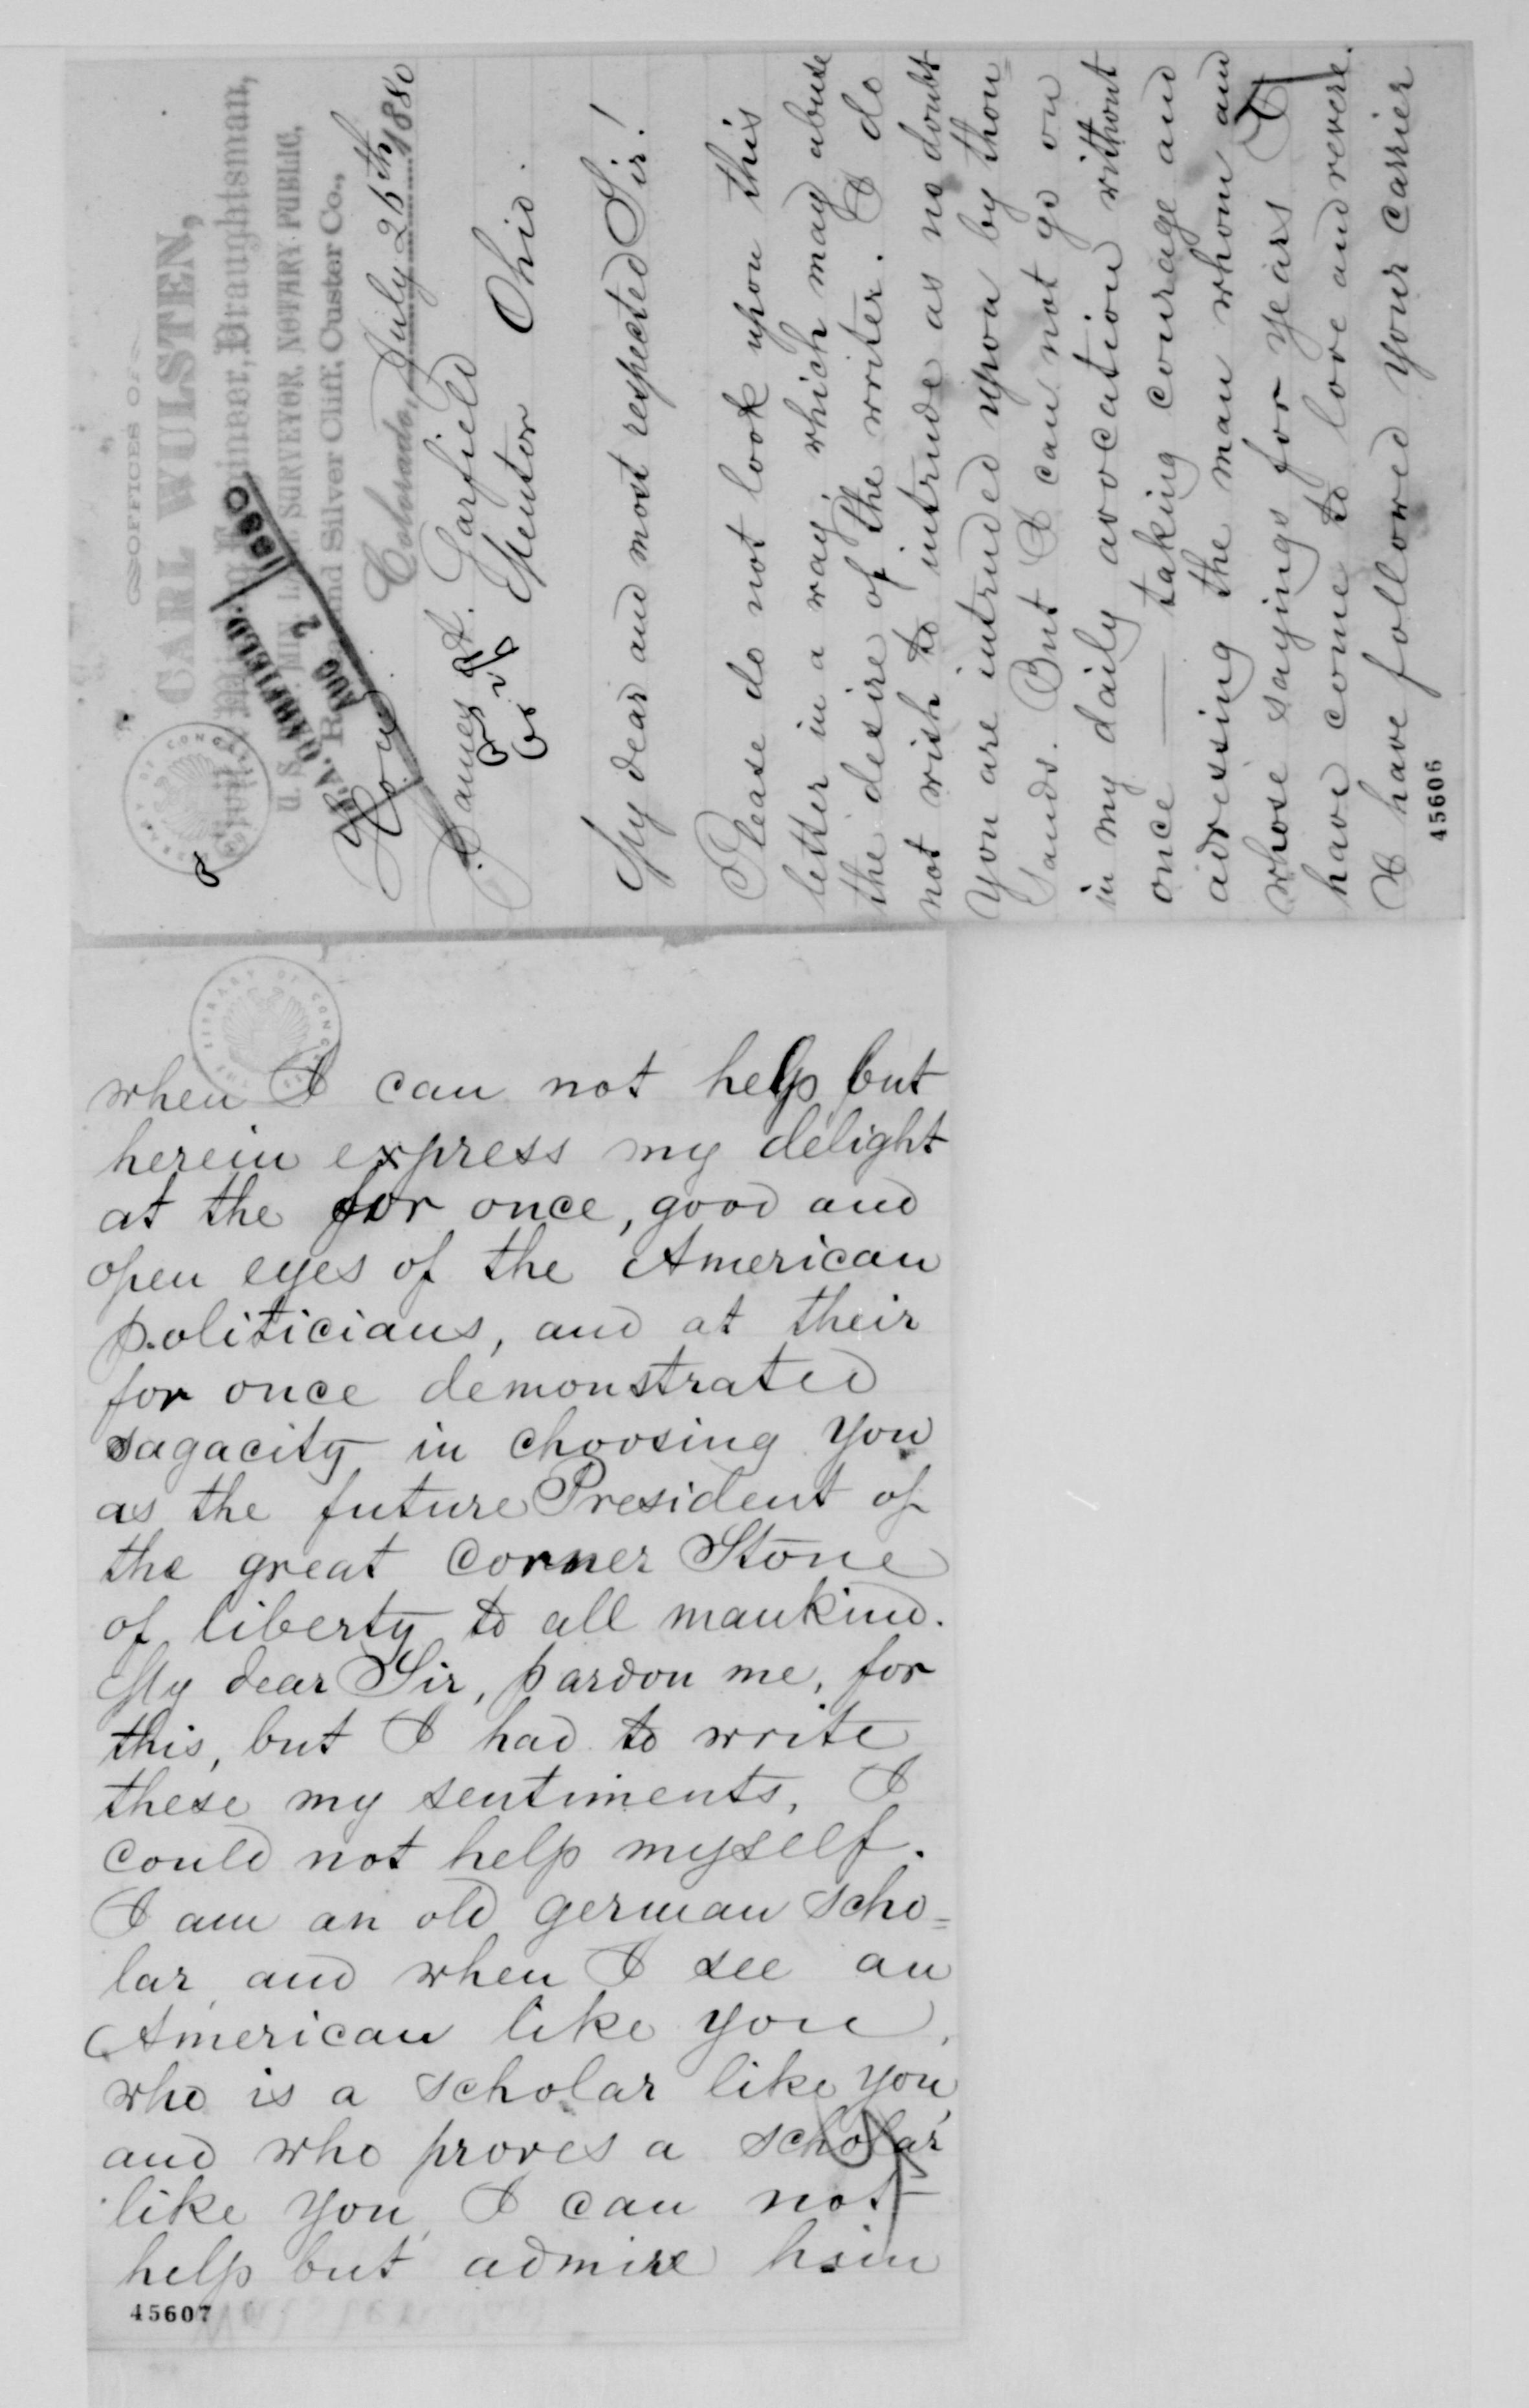 OFFICES OF
CARL WULSTEN,
Civil & Mining Engineer, Draughtsman,
U. S. SURVEYOR, NOTARY PUBLIC,
and Silver Cliff, Custer Co.,
Colorado, July 26th 1880
J. A. GARFIELD.
AUG 2 1880
Hon
James A. Garfield
Mentor Ohio.
My dear and most respected Sir!
Please do not look upon this
letter in a way, which may abuse
the desire of the writer. I do
not wish to intrude as no doubt
you are intruded upon by thou=
sands. But I can not go on
in my daily avocation without
once — taking courage and
adressing the man whom and
whose sayings for years I
have come to love and revere.
I have followed your carrier
45606
when I can not help but
herein express my delight
at the for once, good and
open eyes of the American
politicians, and at their
for once demonstrated
sagacity in choosing you
as the future President of
the great corner Stone
of liberty to all mankind.
My dear Sir, pardon me, for
this, but I had to write
these my sentiments, I
could not help myself.
I am an old german scho=
lar, and when I see an
American like you,
who is a scholar like you,
and who proves a scholar
like you, I can not
help but admire him
45607
THE LIBRARY OF CONGRESS